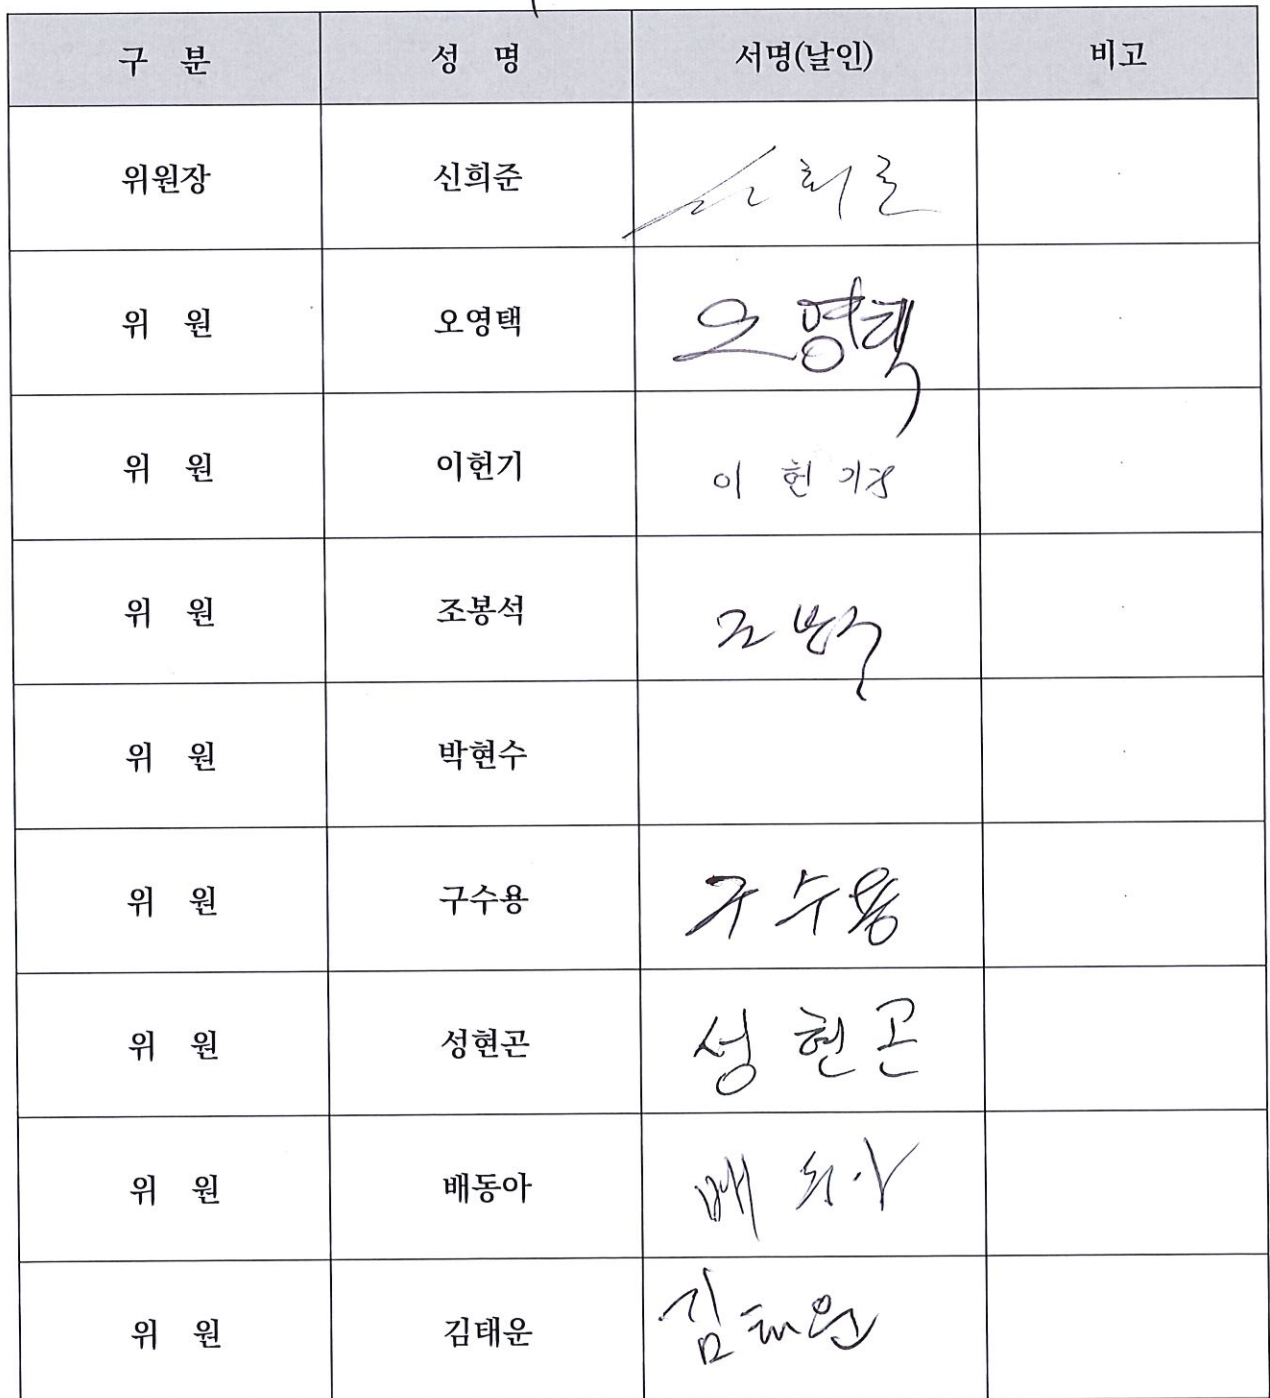 구 분 성 명 서명(날인) 비고
위원장 신희준 신희준
위 원 오영택 오영택
위 원 이헌기 이헌기
위 원 조봉석 조봉석
위 원 박현수
위 원 구수용 구수용
위 원 성현곤 성현곤
위 원 배동아
위 원 김태운 김태운